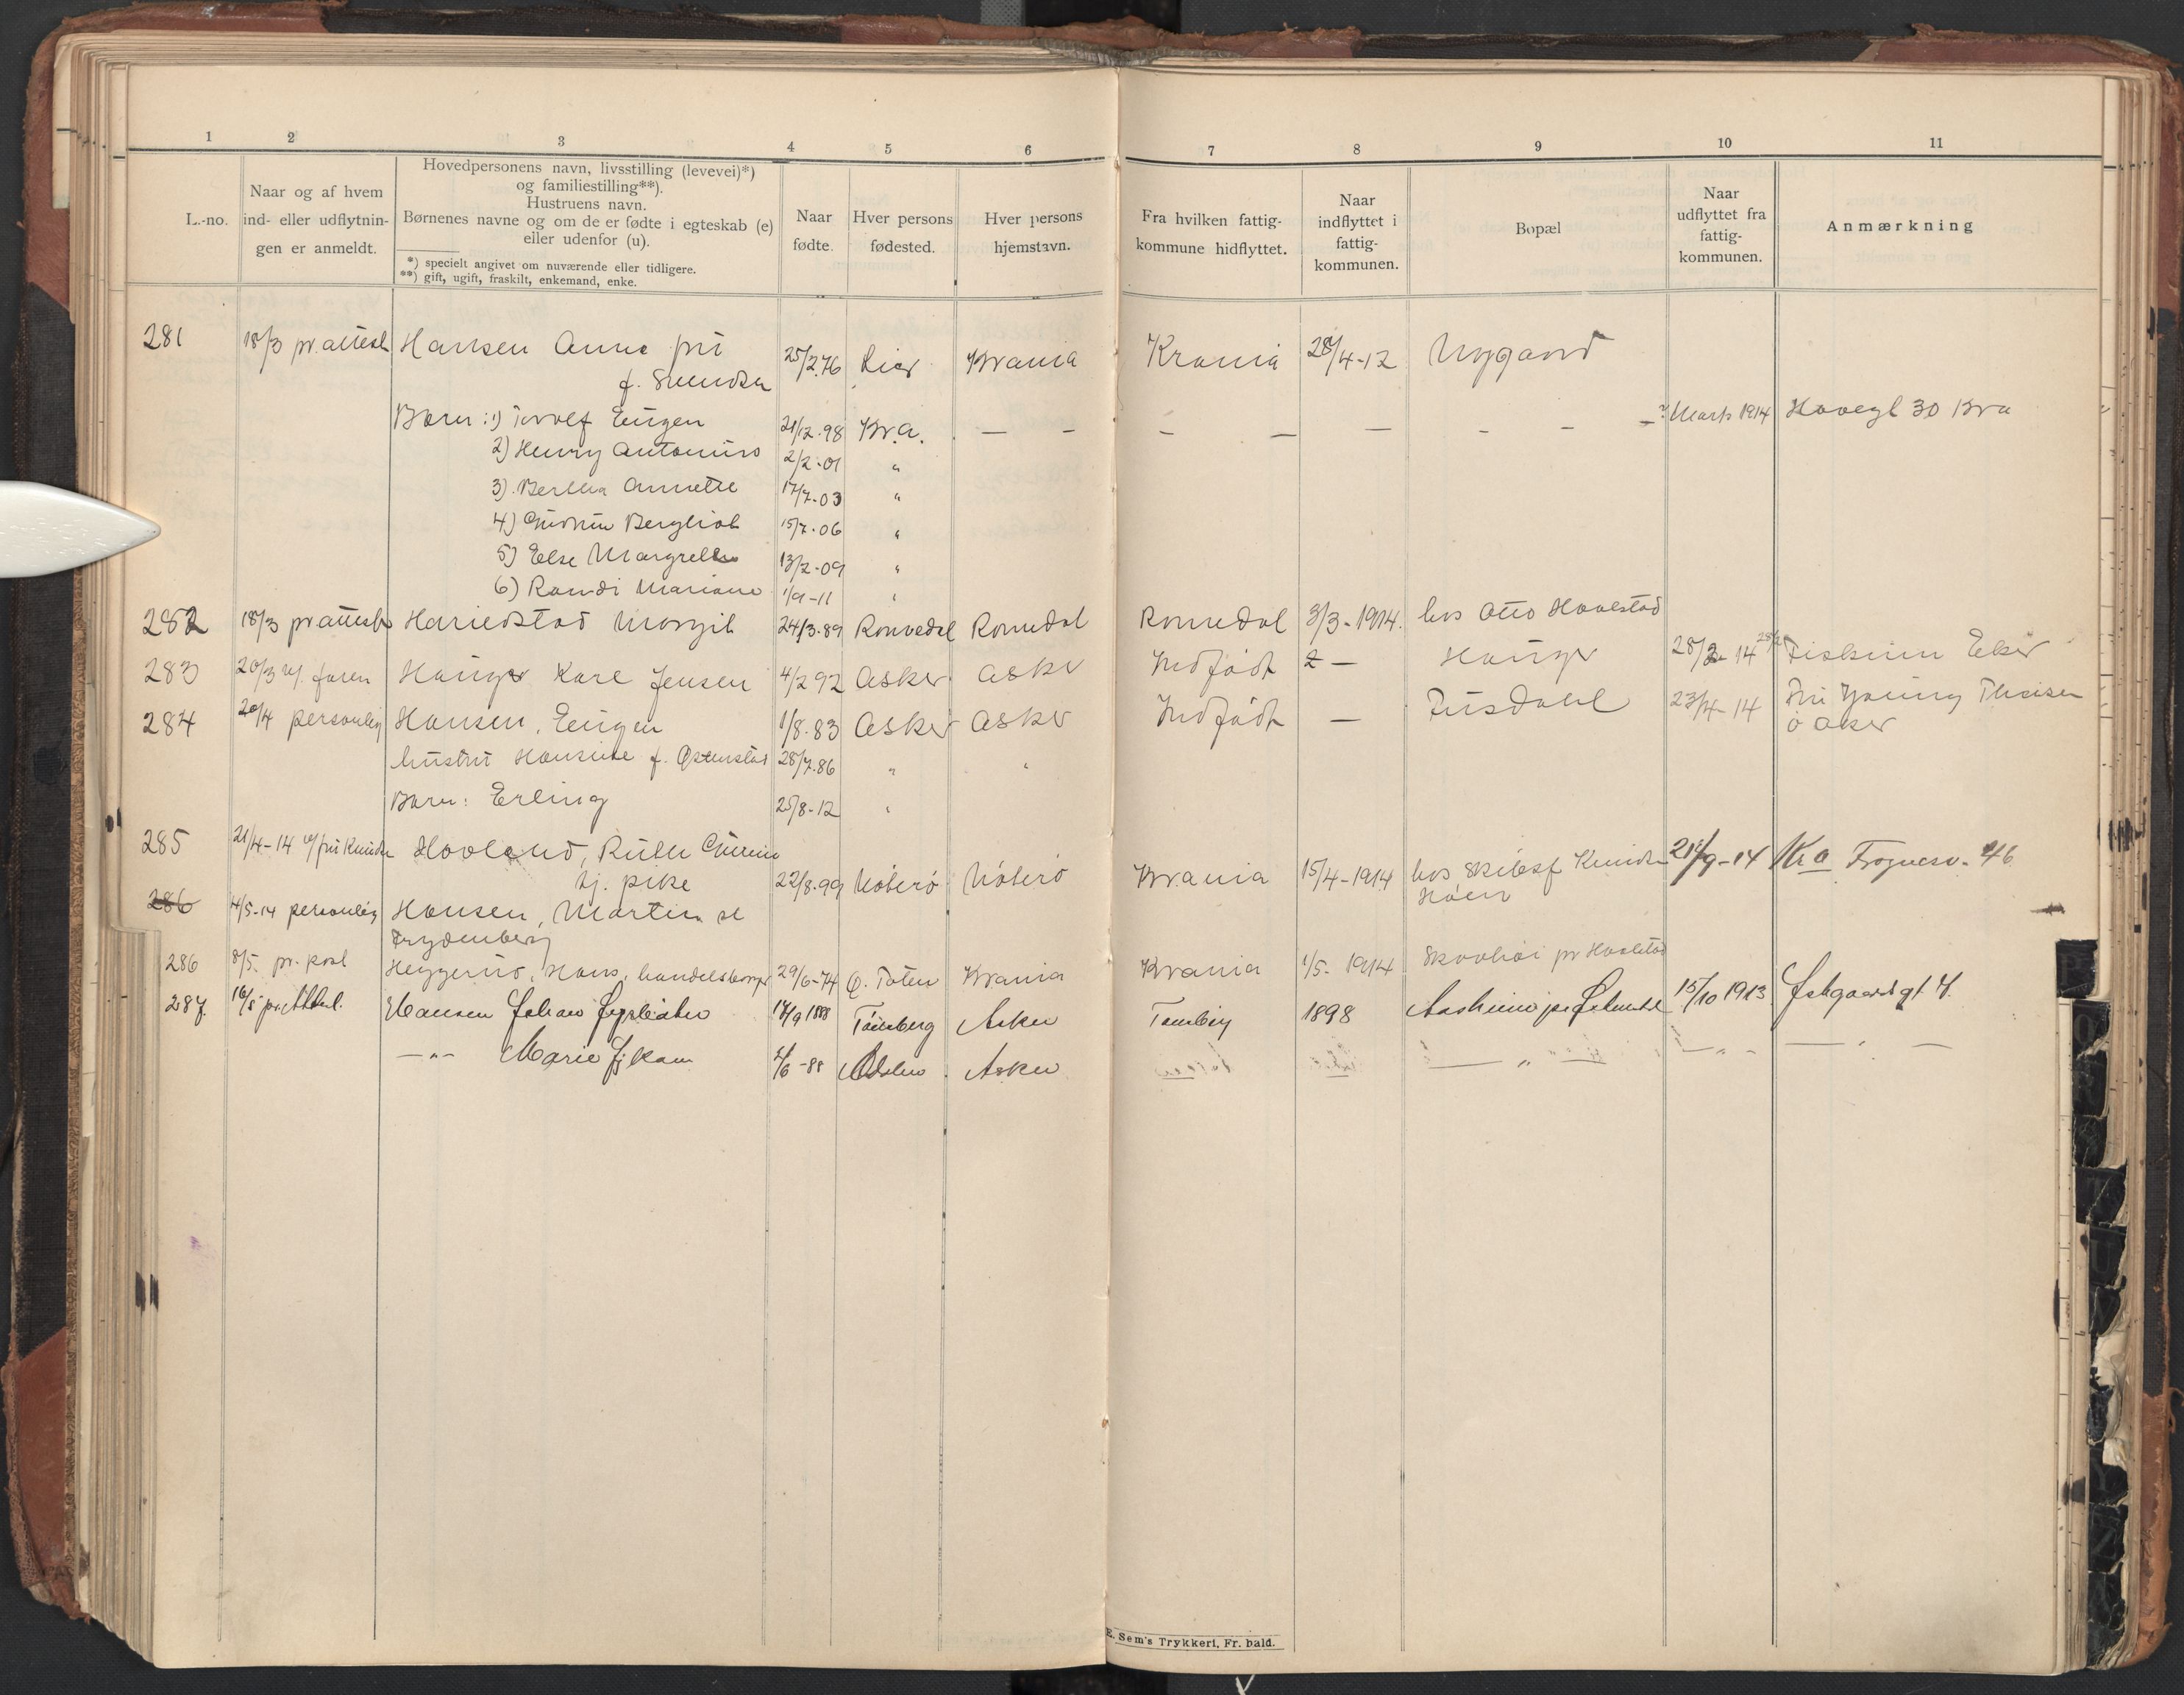 1 2 3 4 5 6 7 8 9 10 11
L.-no.
Naar og af hvem
ind- eller udflytnin-
gen er anmeldt.
Hovedpersonens navn, livsstilling (levevei)*)
og familiestilling**).
Hustruens navn.
Børnenes navne og om de er fødte i egteskab (e)
eller udenfor (u).
*) specielt angivet om nuværende eller tidligere.
**) gift, ugift, fraskilt, enkemand, enke.
Naar
fødte.
Hver persons
fødested.
Hver persons
hjemstavn.
Fra hvilken fattig-
kommune hidflyttet.
Naar
indflyttet i
fattig-
kommunen.
Bopæl
Naar
udflyttet fra
fattig-
kommunen.
Anmærkning
281 18/3 pr. attest Hansen Anna fru 25/2.76 Lier Krania Krania 28/4-12 Nygaard
f. Svendsen
Børn: 1) Torolf Eugen 21/12.98 Kr.a. — — — — — - - - ? Marts 1914 Kra
2) Henry Antonius 2/2-01 "
3). Bertha Annette 17/7-03 "
4) Gudrun Bergliot 15/7-06 "
5) Else Margrethe 13/2-09 "
6) Randi Mariane 1/9-11 "
282 18/3 pr attest Hariedstad Margit 24/3-89 Romedal Romedal Romedal 3/3-1914. hos Otto Havelstad
283 20/3 v/. faren Hauger Kare Jensen 4/2 92 Asker Asker Indfødt — Hauger 28/3-14 Fiskum Eker
284 20/4 personlig Hansen, Eugen 1/8.83 Asker Asker Indfødt — Fusdahl 23/4-14 Fru Young Theisen
ö Aker
hustru Hansine f. Östenstad 28/7.86 " "
Barn: Erling 25/8-12 "
285 21/4-14 v/ fru Knudsen Hovland, Ruth
tj. pike 22/8.99 Nöterö Nöterö Krania 15/4-1914 hos Skibsf Knudsen 21/9-14 Kra Frognerv. 46
286 4/5-14 personlig Hansen, Martin
Frydenberg
286 8/5. pr. post Heggernes, Hans, handelsborger 29/6-74 Ö. Toten Krania Krania 1/5-1914 pr Havlstad
287. 16/5 pr attest. Hansen Johan 14/9 1888 Tönsberg Asker Tønsberg 1898 15/10 1913
—"— Marie 88 Asker — " — — " - — " —
E. Sem's Trykkeri, Fr. hald.